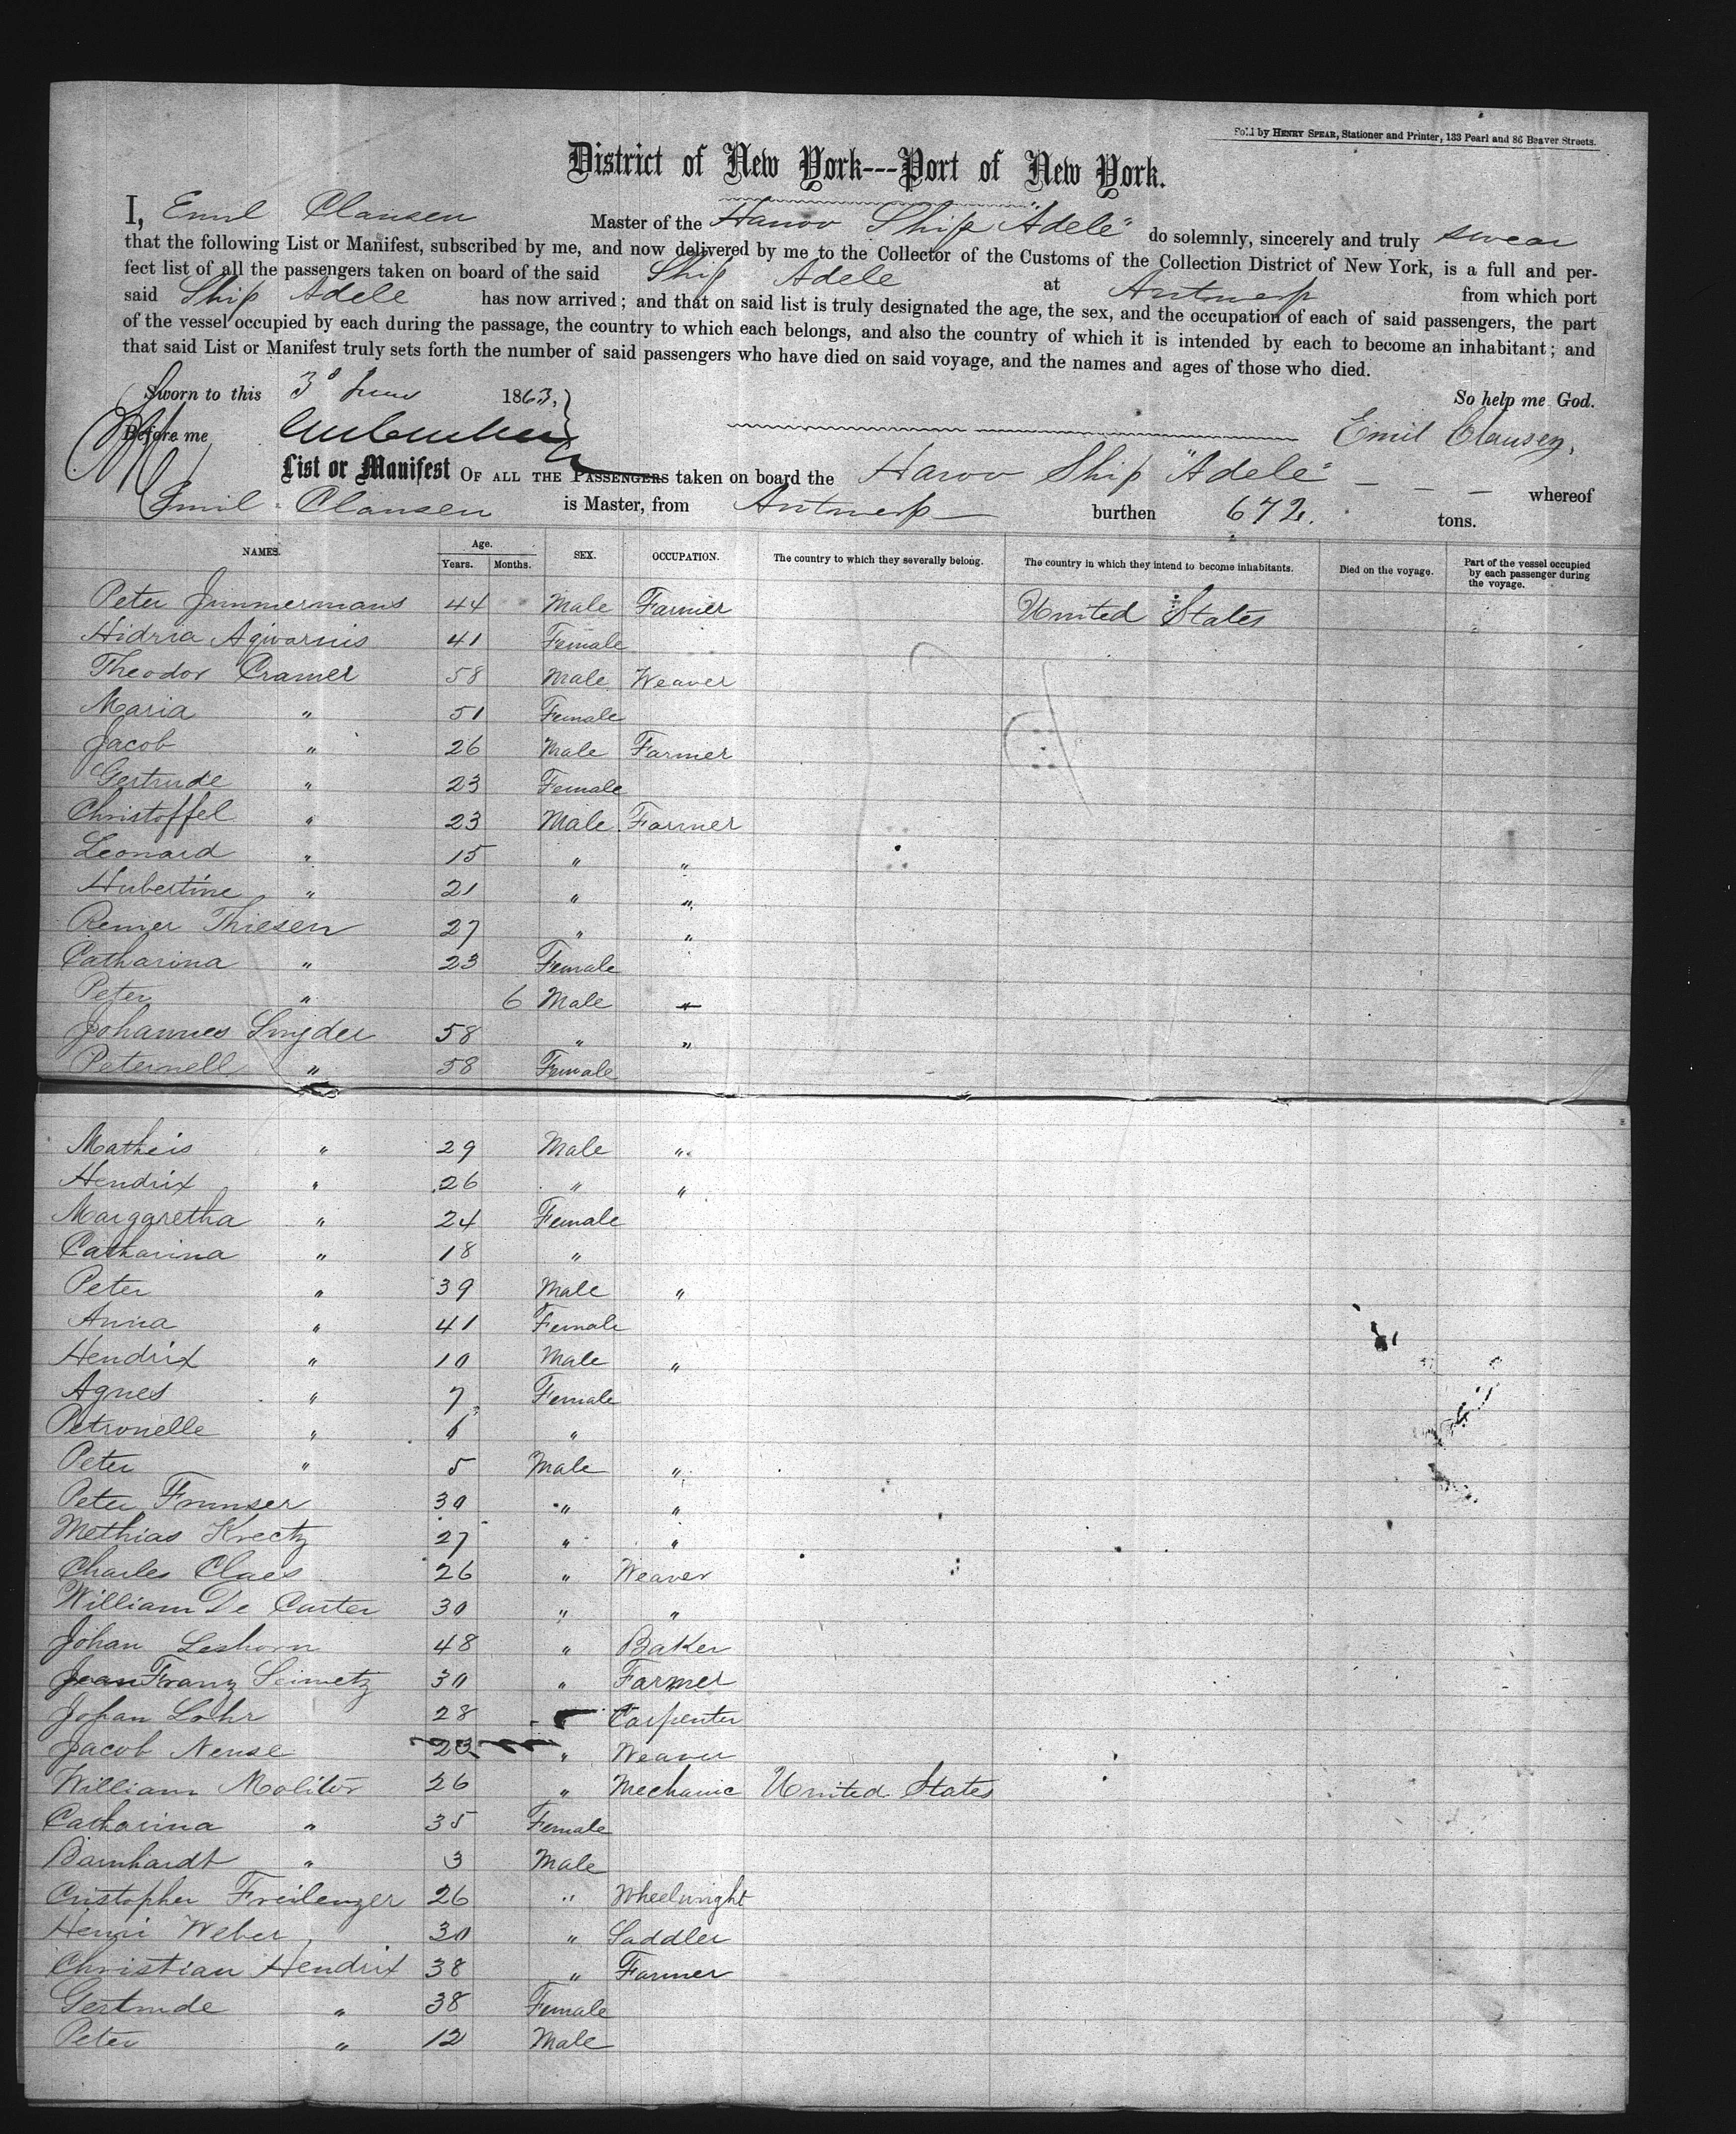 Sold by HENRY SPEAR, Stationer and Printer, 133 Pearl and 86 Beaver Streets.
District of New York---Port of New York.
I, Emil Clausen Master of the Hanov Ship "Adele" do solemnly, sincerely and truly swear
that the following List or Manifest, subscribed by me, and now delivered by me to the Collector of the Customs of the Collection District of New York, is a full and per-
fect list of all the passengers taken on board of the said Ship Adele at Antwerp from which port
said Ship Adele has now arrived; and that on said list is truly designated the age, the sex, and the occupation of each of said passengers, the part
of the vessel occupied by each during the passage, the country to which each belongs, and also the country of which it is intended by each to become an inhabitant; and
that said List or Manifest truly sets forth the number of said passengers who have died on said voyage, and the names and ages of those who died.
Sworn to this 3d June 1863, So help me God.
Before me Emil Clausen,
List or Manifest OF ALL THE PASSENGERS taken on board the Hanov Ship "Adele" - - - whereof
Emil Clausen is Master, from Antwerp burthen 672. tons.
NAMES. Age. Years. Months. SEX. OCCUPATION. The country to which they severally belong. The country in which they intend to become inhabitants. Died on the voyage. Part of the vessel occupied by each passenger during the voyage.
Peter Jummermans 44 Male Farmer United States
41 Female
Theodor Cramer 58 Male Weaver
Maria " 51 Female
Jacob " 26 Male Farmer
Gertrude " 23 Female
Christoffel " 23 Male Farmer
Leonard " 15 " "
Hubertine " 21 " "
Remer Thiesen 27 " "
Catharina " 23 Female
Peter " 6 Male "
Johannes Snyder 58 " "
Peternell " 58 Female
Matheis " 29 Male "
Hendrix " 26 " "
Margaretha " 24 Female
Catharina " 18 "
Peter " 39 Male "
Anna " 41 Female
Hendrix " 10 Male "
Agnes " 7 Female
Petronelle " 6 "
Peter " 5 Male "
Peter Frunser 30 " "
Methias Krectz 27 " "
Charles Claes 26 " Weaver
William De Carter 30 " "
Johan Leshorn 48 " Baker
Jean Franz Scimetz 30 " Farmer
Johan Lohr 28 " Carpenter
Jacob Nense 23 " Weaver
William Molitor 26 " Mechanic United States
Catharina " 35 Female
Barnhardt " 3 Male
Cristopher Freilenzer 26 " Wheelwright
Henri Weber 30 " Saddler
Christian Hendrix 38 " Farmer
Gertrude " 38 Female
Peter " 12 Male